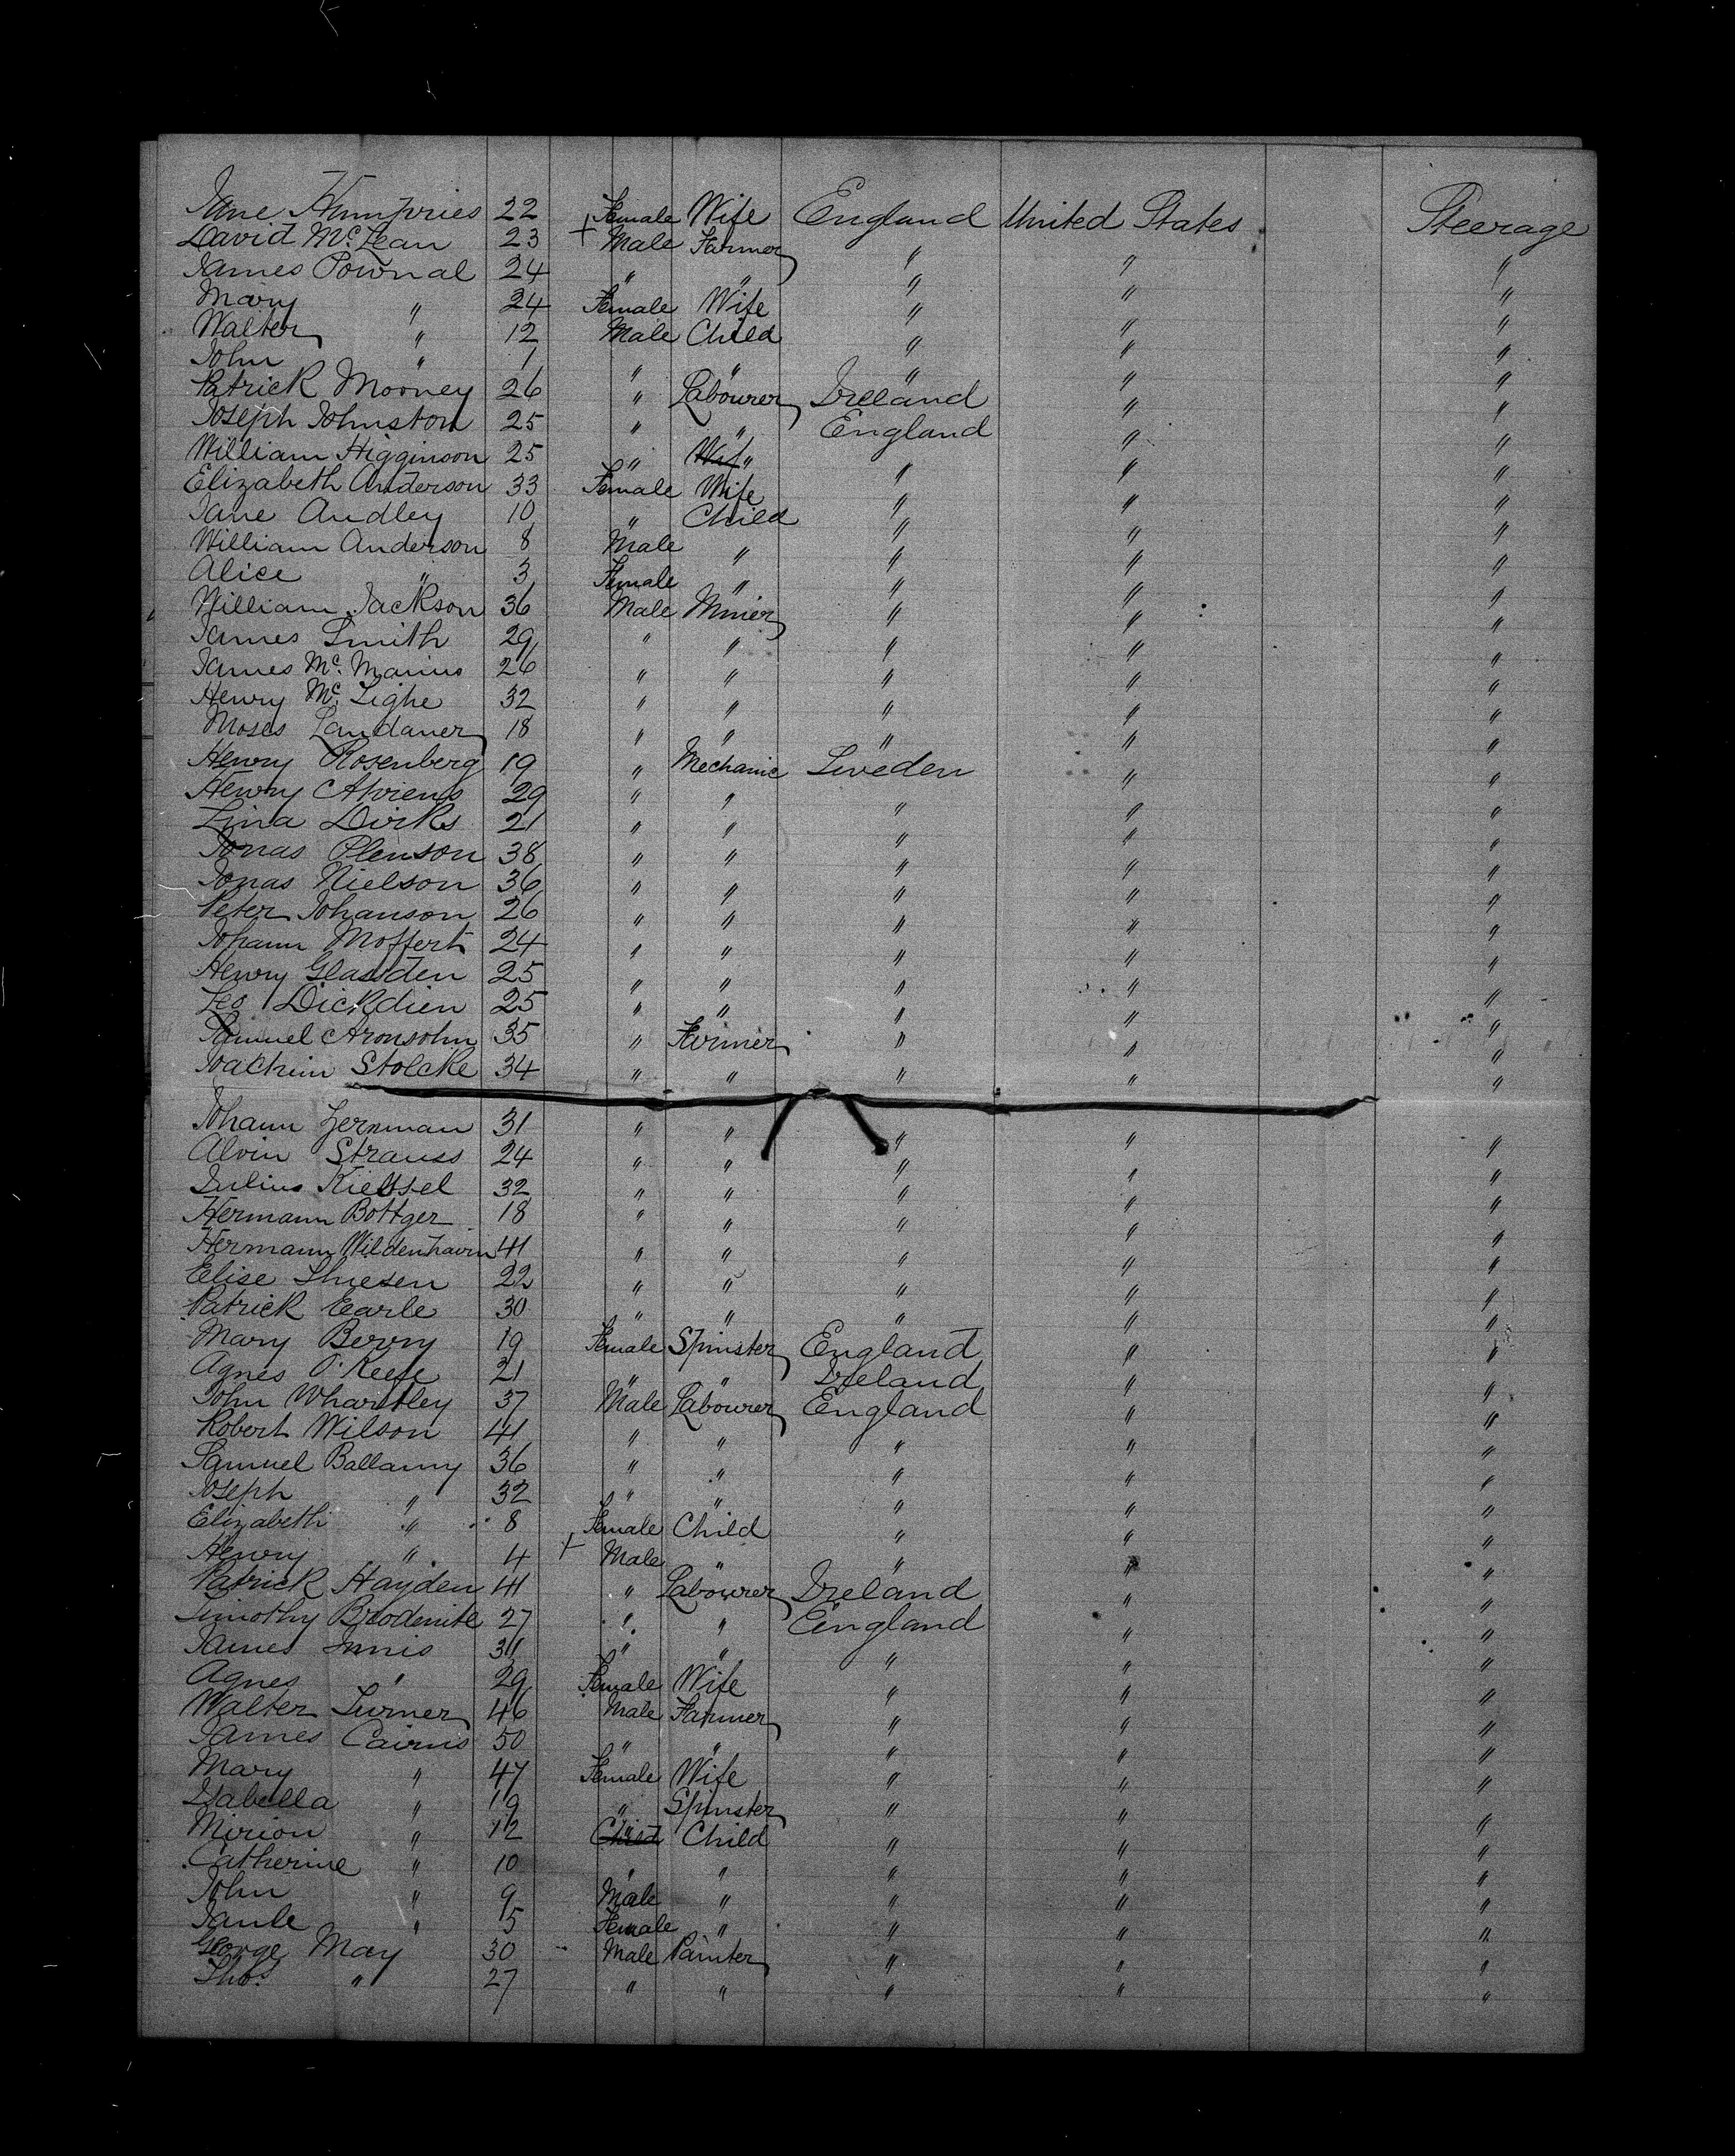 Jane Humphries 22 Female Wife England United States Steerage
David Mc. Lean 23 + Male Farmer " " "
James Pownal 24 " " " " "
Mary " 24 Female Wife " " "
Walter " 12 Male Child " " "
John " 1 " " " " "
Patrick Mooney 26 " Labourer Ireland " "
Joseph Johnston 25 " " England " "
William Higginson 25 " " " " "
Elizabeth Anderson 33 Female Wife " " "
Jane Audley 10 " Child " " "
William Anderson 8 Male " " " "
Alice " 3 Female " " " "
William Jackson 36 Male Miner " " "
James Smith 29 " " " " "
James Mc. Manus 26 " " " " "
Henry Mc. Tighe 32 " " " " "
Moses Landauer 18 " " " " "
Henry Rosenberg 19 " Mechanic Sweden " "
Henry Ahrens 29 " " " " "
Lina Dirks 21 " " " " "
Jonas Plenson 38 " " " " "
Jonas Nielson 36 " " " " "
Peter Johanson 26 " " " " "
Johann Moffert 24 " " " " "
Henry 25 " " " " "
Leo Dickdien 25 " " " " "
Samuel Aronsohn 35 " Farmer " " "
Joachim Stolcke 34 " " " " "
Johann Zernman 31 " " " " "
Alvin Strauss 24 " " " " "
Julius Kiessel 32 " " " " "
Hermann Bottger 18 " " " " "
Hermann Wildenhavin 41 " " " " "
Elise Thiesen 22 " " " " "
Patrick Earle 30 " " " " "
Mary Berry 19 Female Spinster England " "
Agnes O'Keefe 21 " " Ireland " "
John Whartley 37 Male Labourer England " "
Robert Wilson 41 " " " " "
Samuel Ballamy 36 " " " " "
Joseph " 32 " " " " "
Elizabeth " 8 Female Child " " "
Henry " 4 + Male " " " "
Patrick Hayden 41 " Labourer Ireland " "
Timothy 27 " " England " "
James Innis 31 " " " " "
Agnes " 29 Female Wife " " "
Walter Turner 46 Male Farmer " " "
James Cairns 50 " " " " "
Mary " 47 Female Wife " " "
Isabella " 19 " Spinster " " "
Mirion " 12 " Child " " "
Catherine " 10 " " " " "
John " 9 Male " " " "
" 5 Female " " " "
George May 30 Male Painter " " "
Thos. " 27 " " " " "